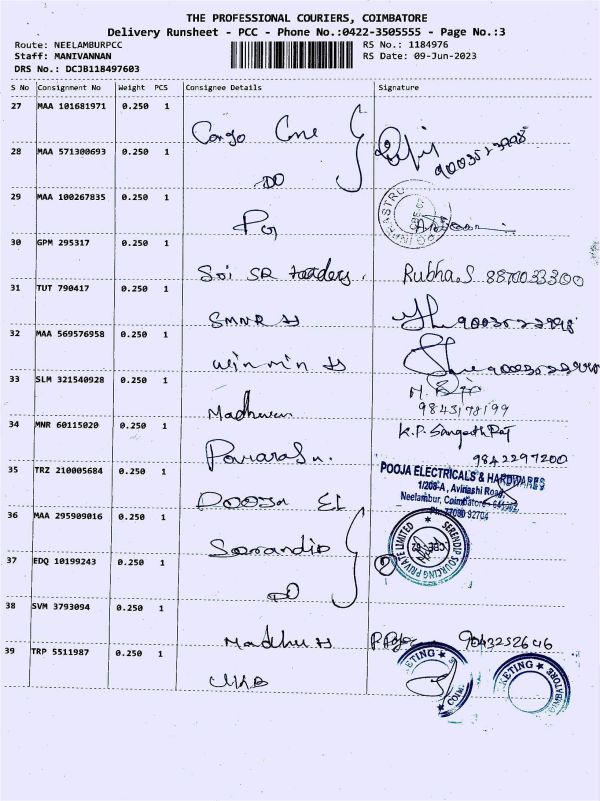 THE PROFESSIONAL COURIERS, COIMBATORE
Delivery Runsheet - PCC - Phone No.:0422-3505555 - Page No.:3
Route: NEELAMBURPCC RS No.: 1184976
Staff: MANIVANNAN RS Date: 09-Jun-2023
DRS No.: DCJB118497603
S No Consignment No Weight PCS Consignee Details Signature
27 MAA 101681971 0.250 1
Cargo One
28 MAA 571300693 0.250 1
DO
29 MAA 100267835 0.250 1
30 GPM 295317 0.250 1
Sri SR traders. Rubha.S 8870033300
31 TUT 790417 0.250 1
SMNR
32 MAA 569576958 0.250 1
33 SLM 321540928 0.250 1
9843178199
Madhuvan
34 MNR 60115020 0.250 1
9842297200
35 TRZ 210005684 0.250 1
POOJA ELECTRICALS & HARDWARES
1/208-A, Avinashi Road,
Neelambur, Coimbatore -
Pooja El
36 MAA 295909016 0.250 1
SERENDIP SOURCING PRIVATE LIMITED
37 EDQ 10199243 0.250 1
2
DO
38 SVM 3793094 0.250 1
Madhu
39 TRP 5511987 0.250 1